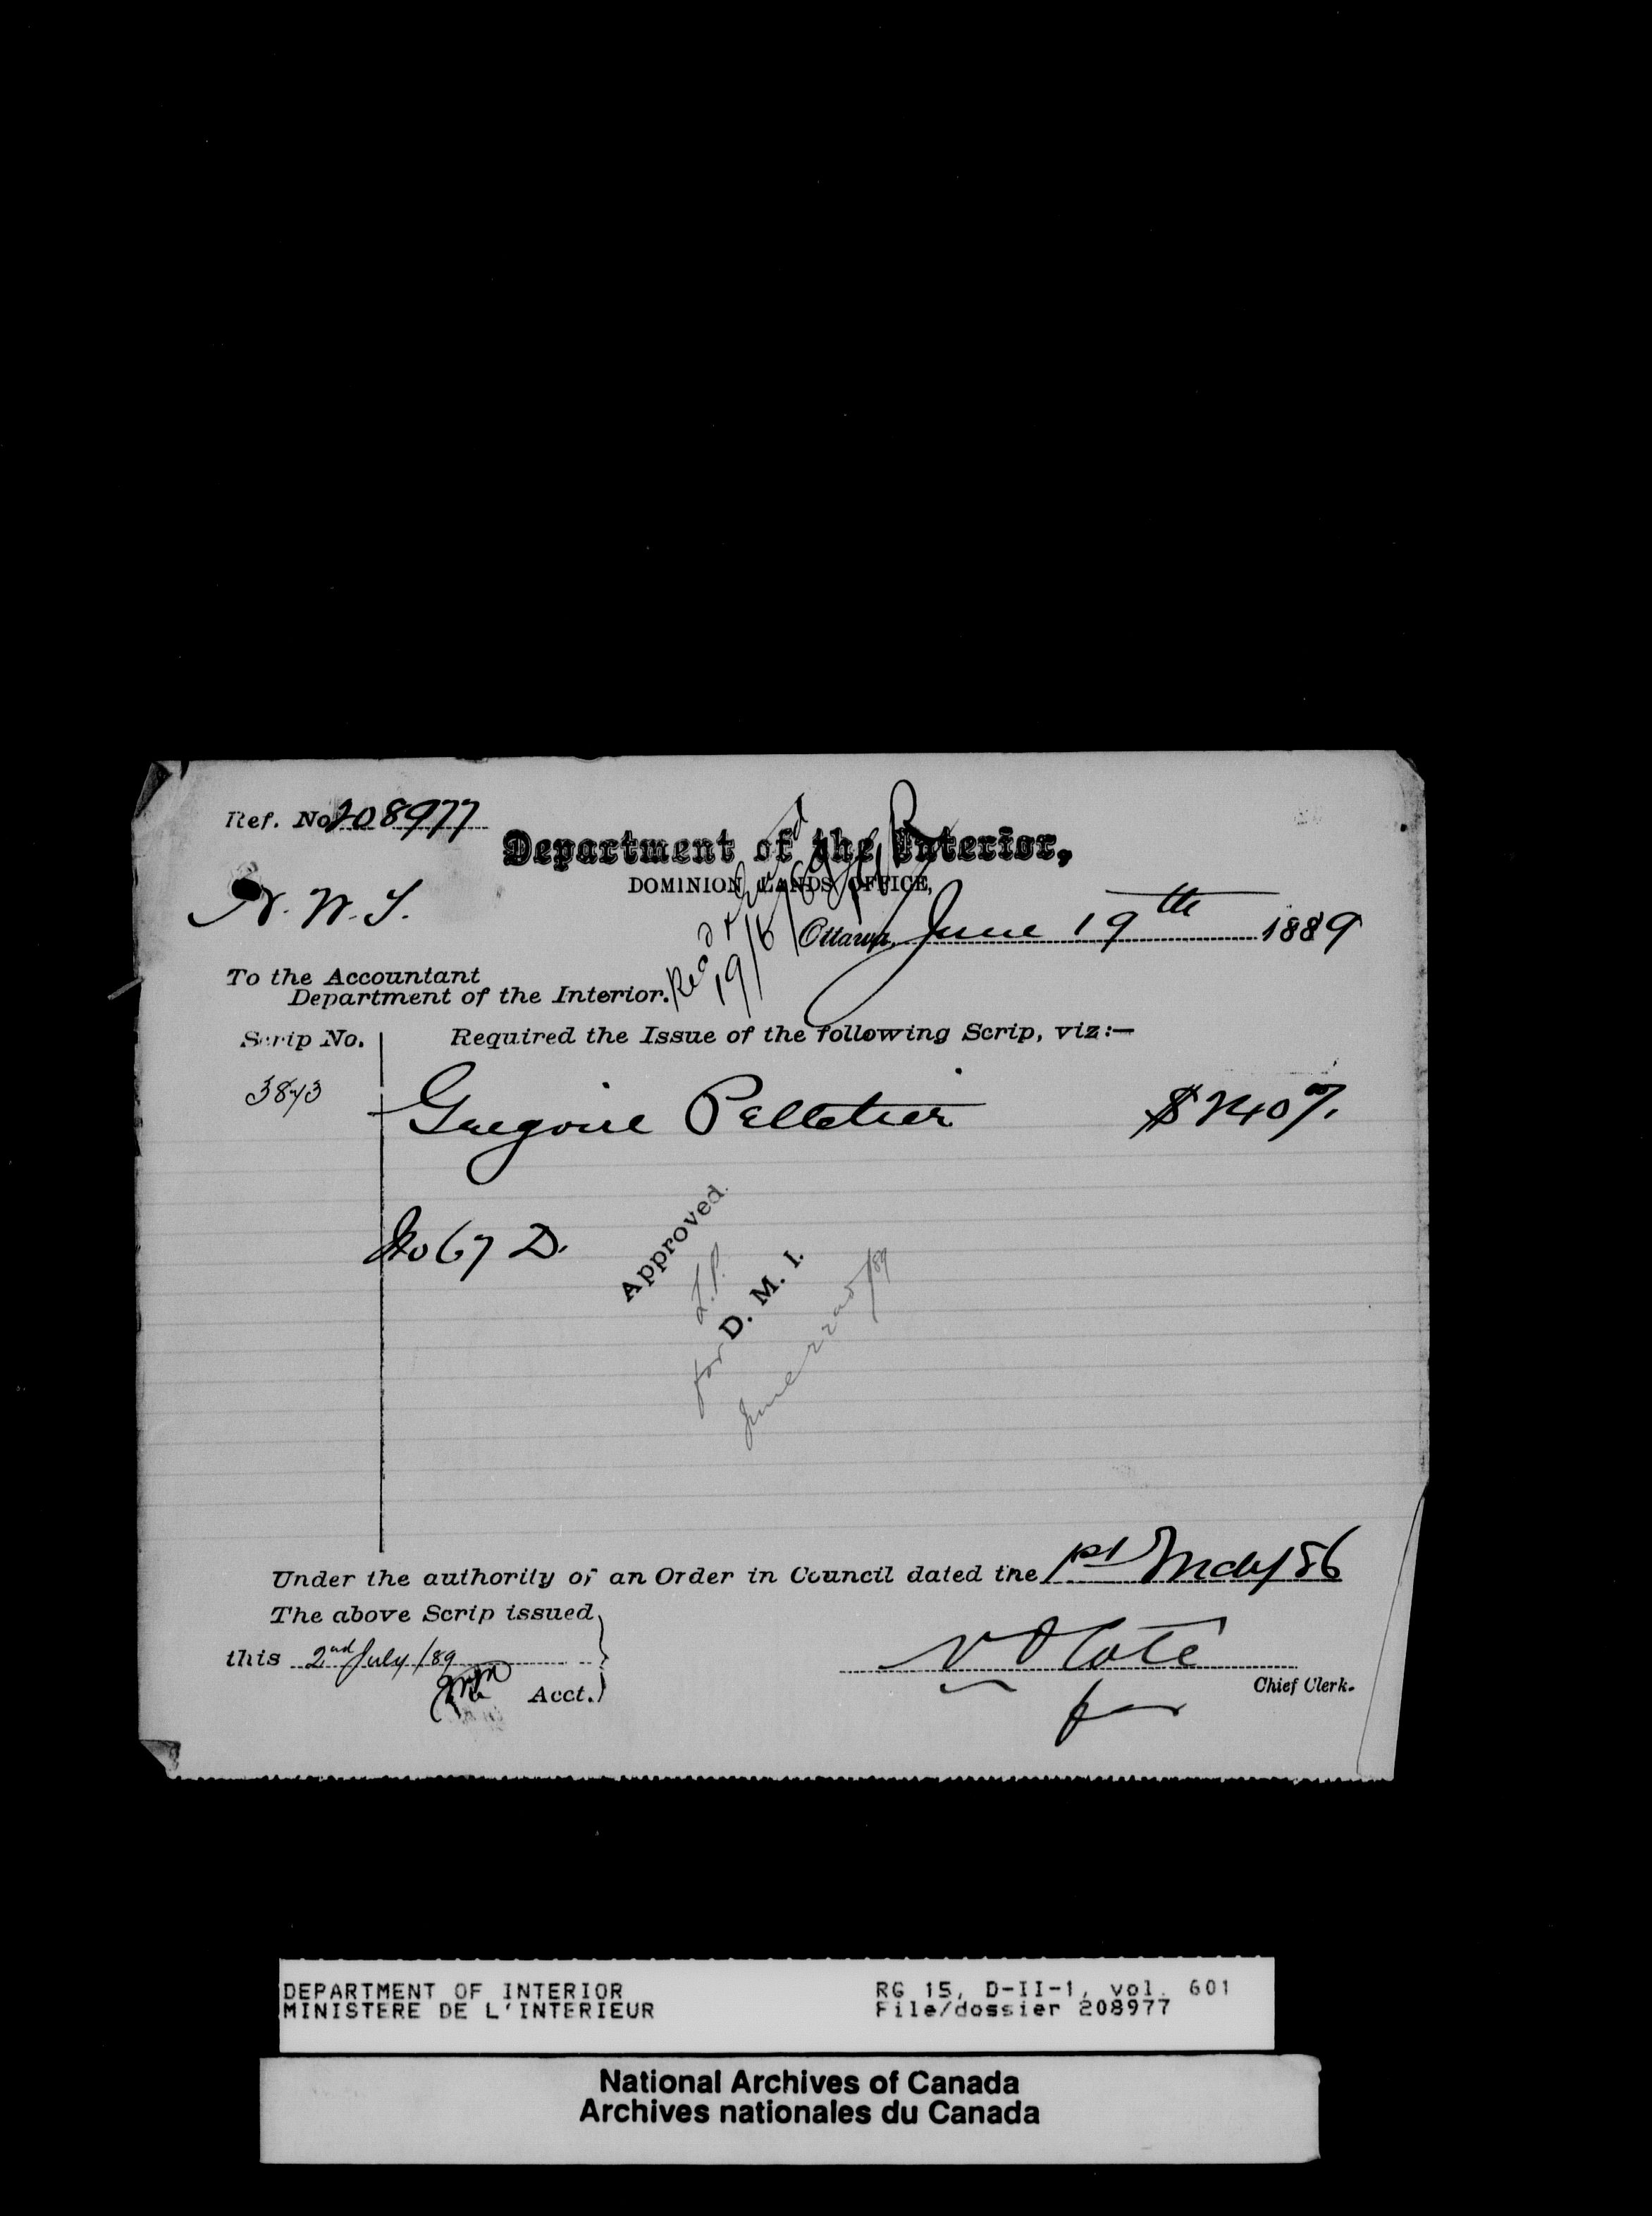 Ref. No 208977
Department of the Interior,
DOMINION LANDS OFFICE,
N. W. T.
Ottawa, June 19th 1889
19/6/89
To the Accountant
Department of the Interior.
Scrip No. Required the Issue of the following Scrip, viz:—
3843 Gregoire Pelletier $240 00/.
No 67 D.
Approved.
L.P.
for D. M. I.
June 22nd/89
Under the authority of an Order in Council dated the 1st May/86
The above Scrip issued
this 2nd July/89
Acct.
N O Coté
for Chief Clerk.
DEPARTMENT OF INTERIOR RG 15, D-II-1, vol. 601
MINISTERE DE L'INTERIEUR File/dossier 208977
National Archives of Canada
Archives nationales du Canada